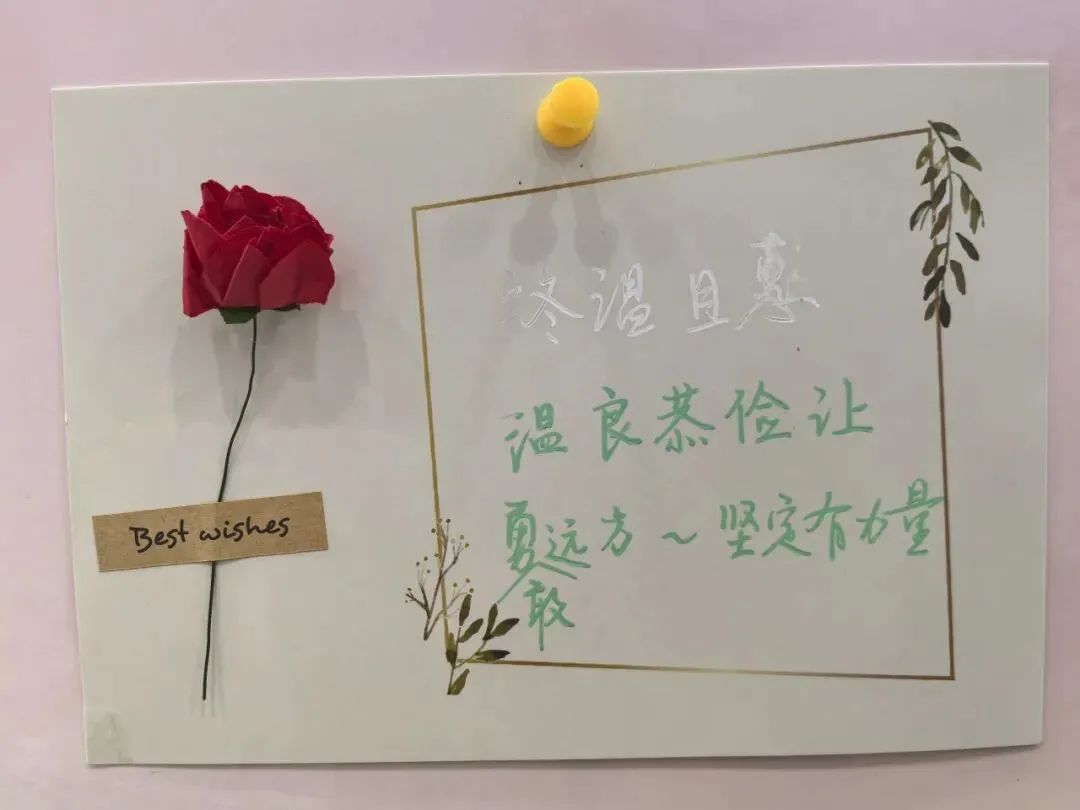 Best wishes
终温且惠
温良恭俭让
勇敢远方~坚定有力量